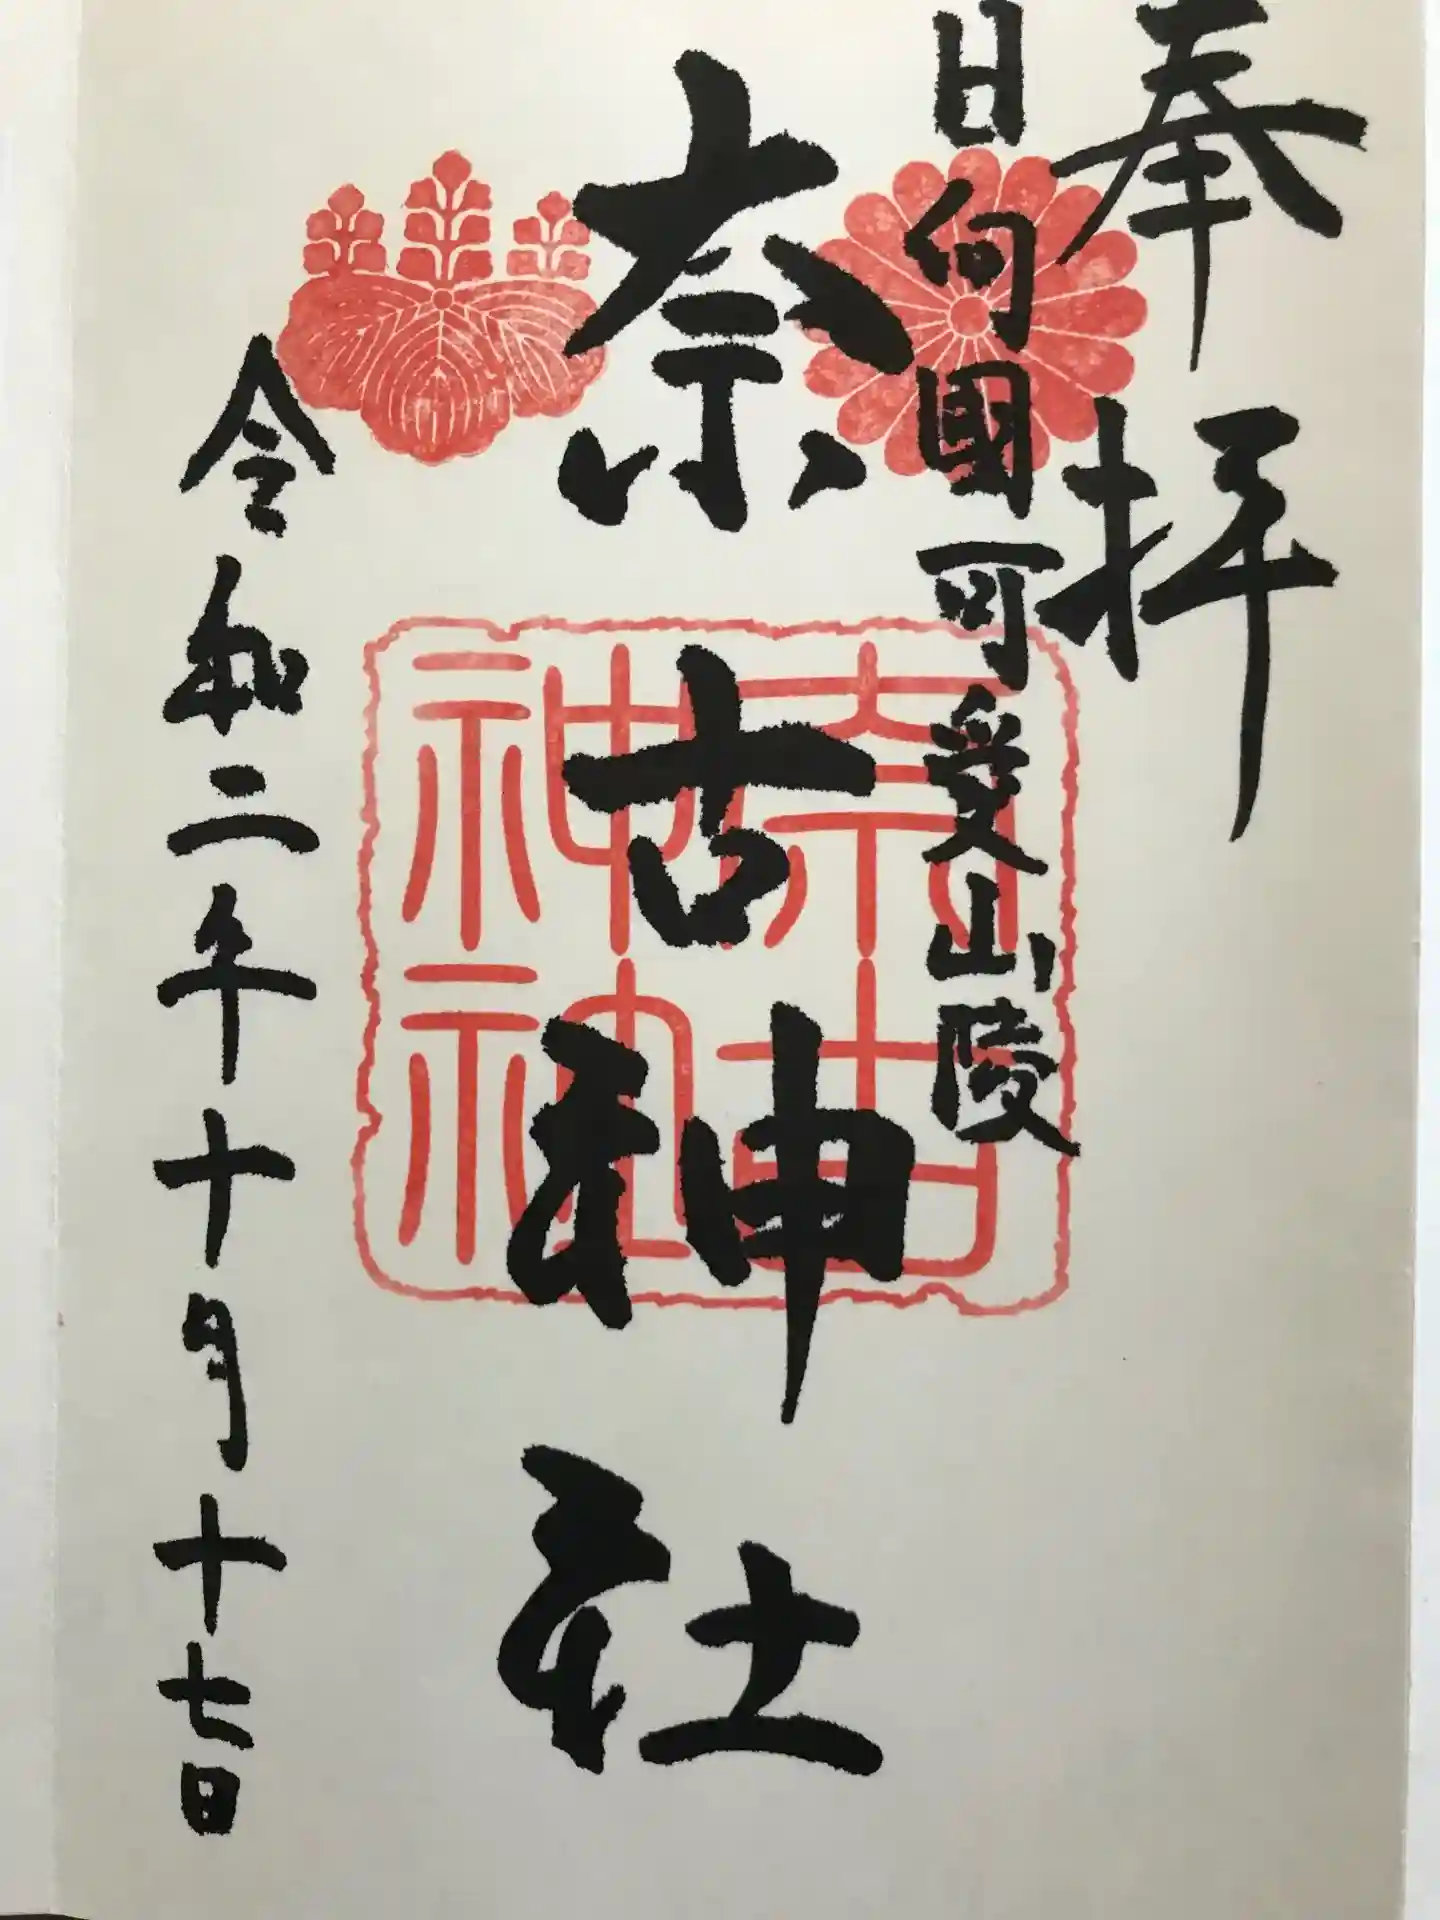 奉拝
日向国可受山陵
奈古神社
奈古
神社
令和二年十月十七日